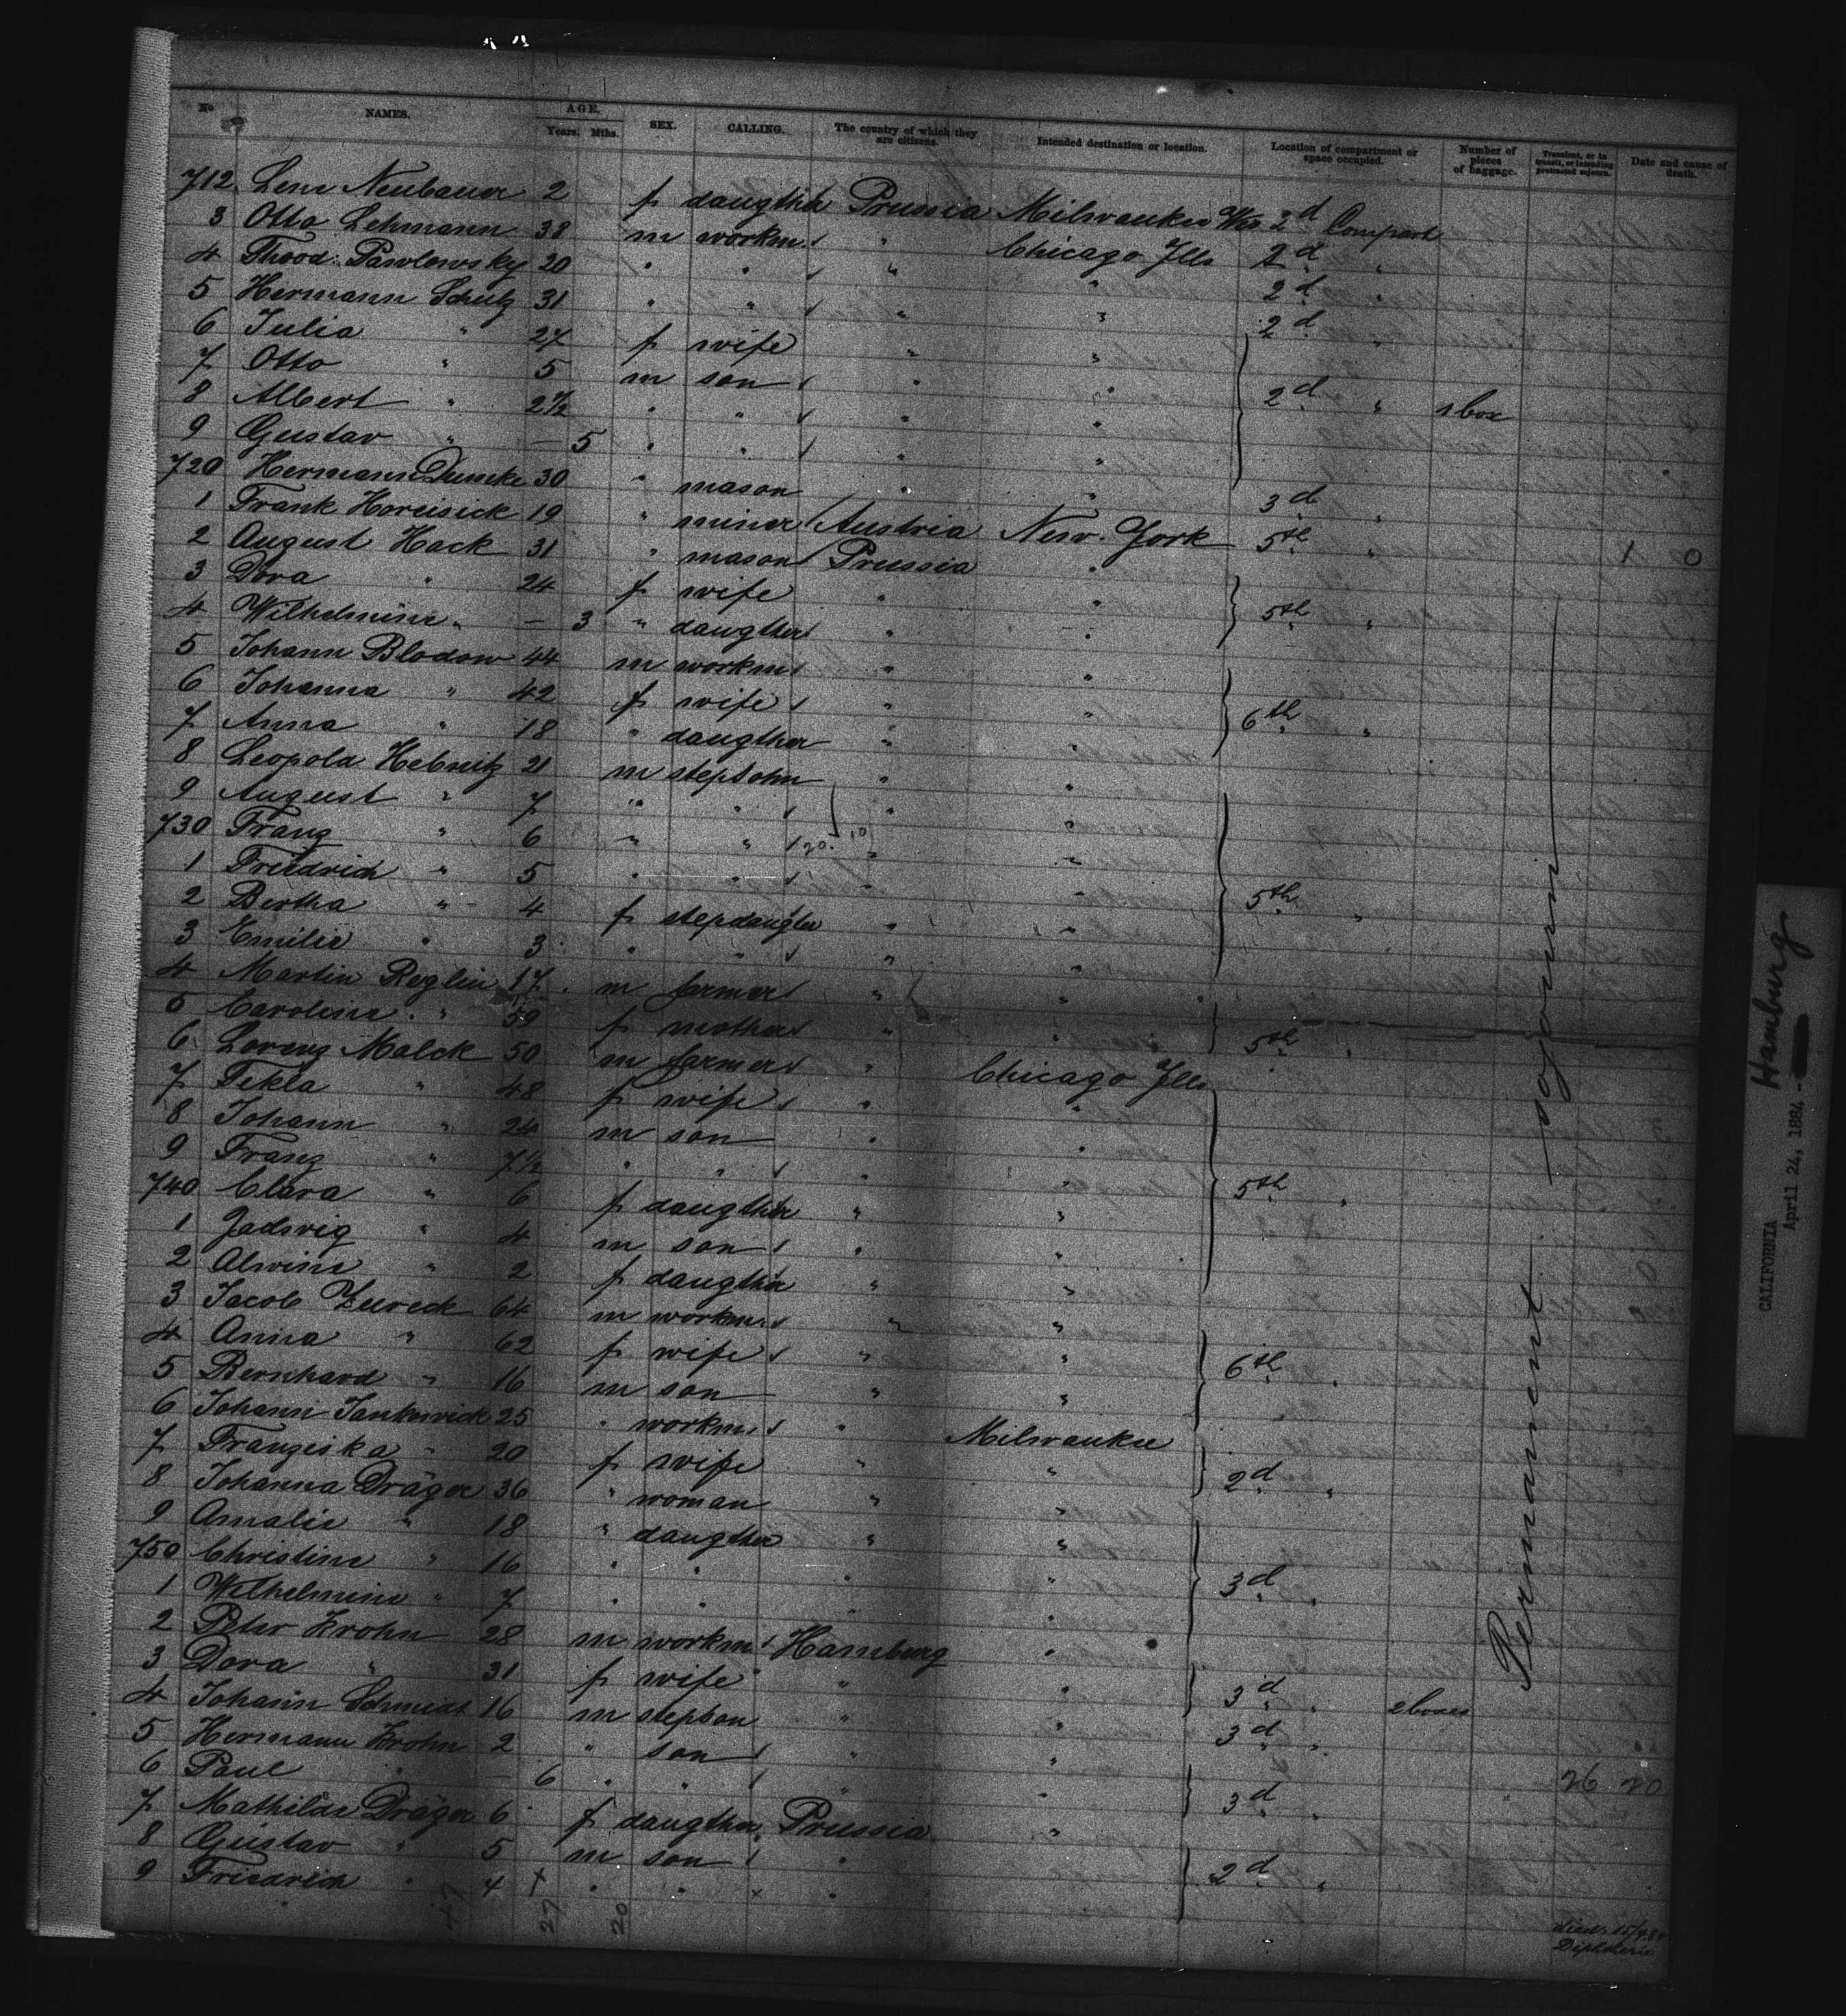 No NAMES. AGE. SEX. CALLING. The country of which they are citizens. Intended destination or location. Location of compartment or space occupied. Number of pieces of baggage. Transient, or in transit, or intending protracted sojourn. Date and cause of death.
Years. Mths.
712 Lene Neubauer 2 f daugther Prussia Milwaukee Wis 2d Compart
3 Otto Lehmann 38 m workm. " Chicago Ills 2d "
4 Theod. Pawlowsky 20 " " " " 2d "
5 Hermann Schulz 31 " " " " 2d "
6 Julia " 27 f wife " "
7 Otto " 5 m son " " 2d " 1 box
8 Albert " 2½ " " " "
9 Gustav " — 5 " " " "
720 Hermann Dumke 30 " mason " " 3d "
1 Frank Horeisick 19 " miner Austria New-York 5th "
2 August Hack 31 " mason Prussia " 1 0
3 Dora " 24 f wife " " 5th "
4 Wilhelmine " — 3 " daugther " "
5 Johann Blodow 44 m workm " "
6 Johanna " 42 f wife " " 6th "
7 Anna " 18 " daugther " "
8 Leopold Hebnitz 21 m stepsohn " "
9 August " 7 " " " "
730 Franz " 6 " " 20. 10 " "
1 Friedrich " 5 " " " "
2 Bertha " 4 f stepdaugter " " 5th "
3 Emilie " 3 " " " "
4 Martin Reglin 17 m farmer " "
5 Caroline " 59 f mother " " 5th "
6 Lorenz Malck 50 m farmer " Chicago Ills
7 Tekla " 48 f wife " "
8 Johann " 24 m son " "
9 Franz " 7½ " " " "
740 Clara " 6 f daugther " " 5th "
1 Jadwig " 4 m son " "
2 Alwine " 2 f daugther " "
3 Jacob Zureck 64 m workm. " "
4 Anna " 62 f wife " " 6th "
5 Bernhard " 16 m son " "
6 Johann Jankowick 25 " workm. " Milwaukee
7 Franziska " 20 f wife " " 2d "
8 Johanna Dräger 36 " woman " "
9 Amalie " 18 " daugther " "
750 Christine " 16 " " " " 3d "
1 Wilhelmine " 7 " " " "
2 Peter Krohn 28 m workm Hamburg "
3 Dora " 31 f wife " " 3d " 2 boxes
4 Johann Schmidt 16 m stepson " " 3d "
5 Hermann Krohn 2 " son " "
6 Paul " — 6 " " " " 3d " 26 20
7 Mathilde Dräger 6 f daugther Prussia "
8 Gustav " 5 m son " 2d "
9 Friedrich " 4 + " " "
died 15/4.84
Diphterie
47 27 20
Permanent sojourn
CALIFORNIA Hamburg
April 24, 1884 -